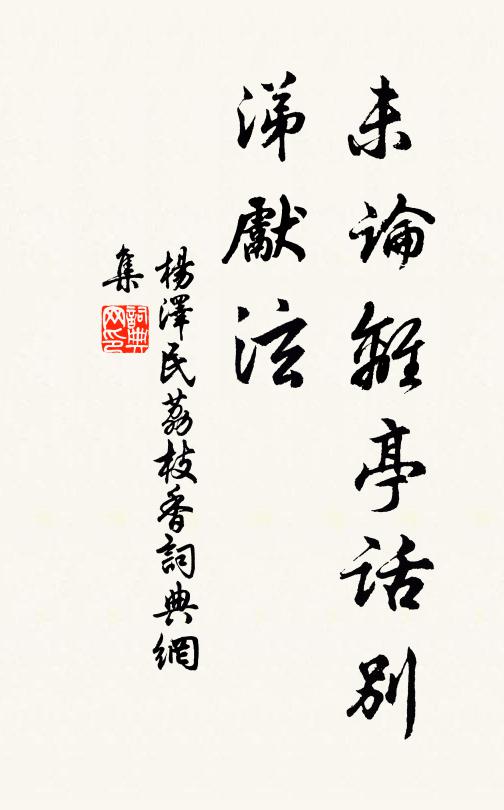 未論離亭話別
涕獻泫
楊澤民荔枝香詞典網
集
詞典
网印